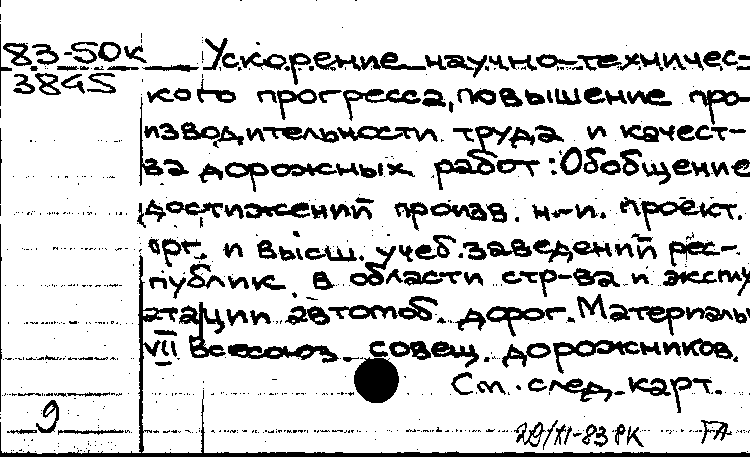 83-50к Ускорение научно-техничес-
3845 кого прогресса, повышение про-
изводительности труда и качест-
ва дорожных работ: Обобщение
достижений произв. н.-и. проект.
орг. и высш. учеб. заведений рес-
публик в области стр-ва и эксплу
атации автомоб. дорог. Материалы
VII Всесоюз. совещ. дорожников.
См. след. карт.
9
29/XI-83 РК